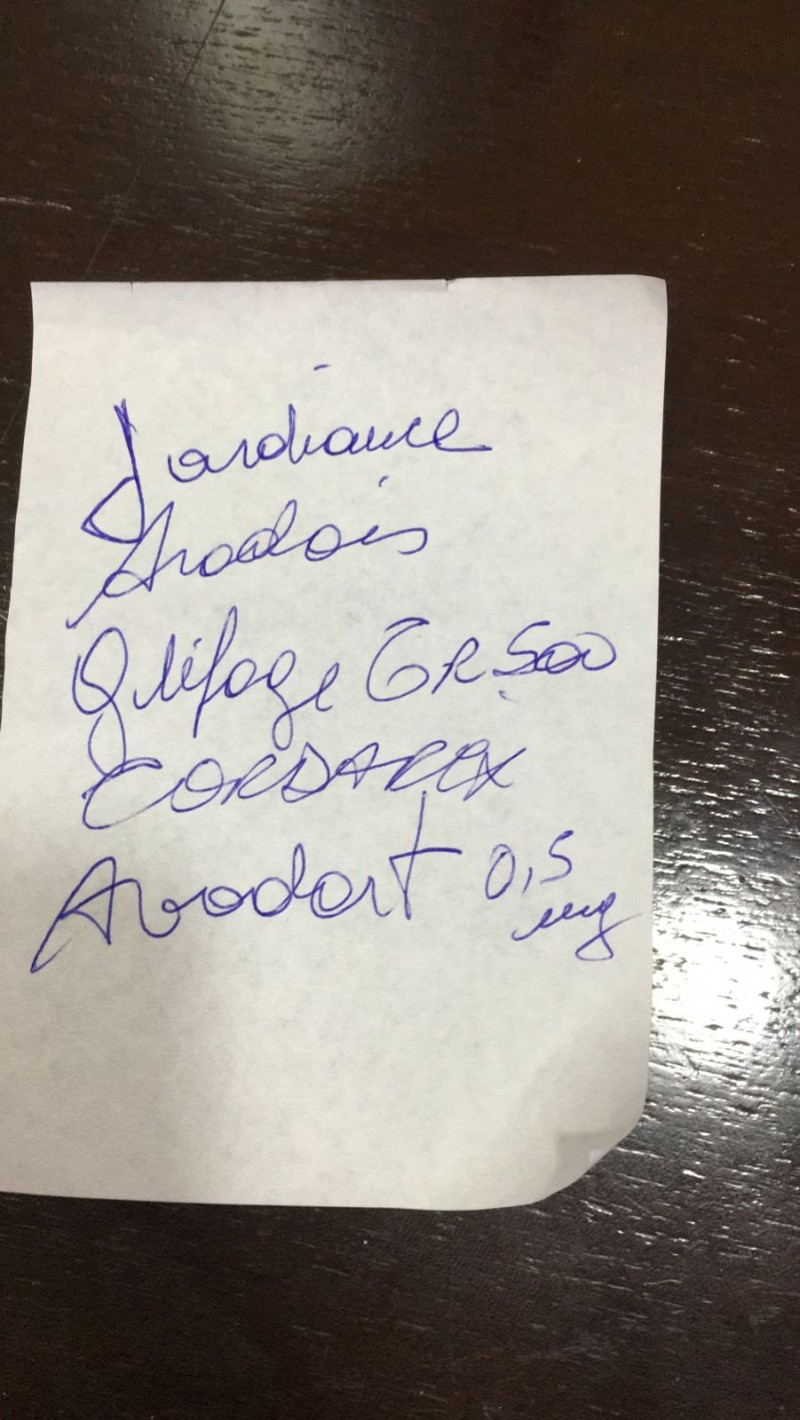 Jardiance
Aradois
Glifage GR 500
CORDAREX
Avodart 0,5
mg